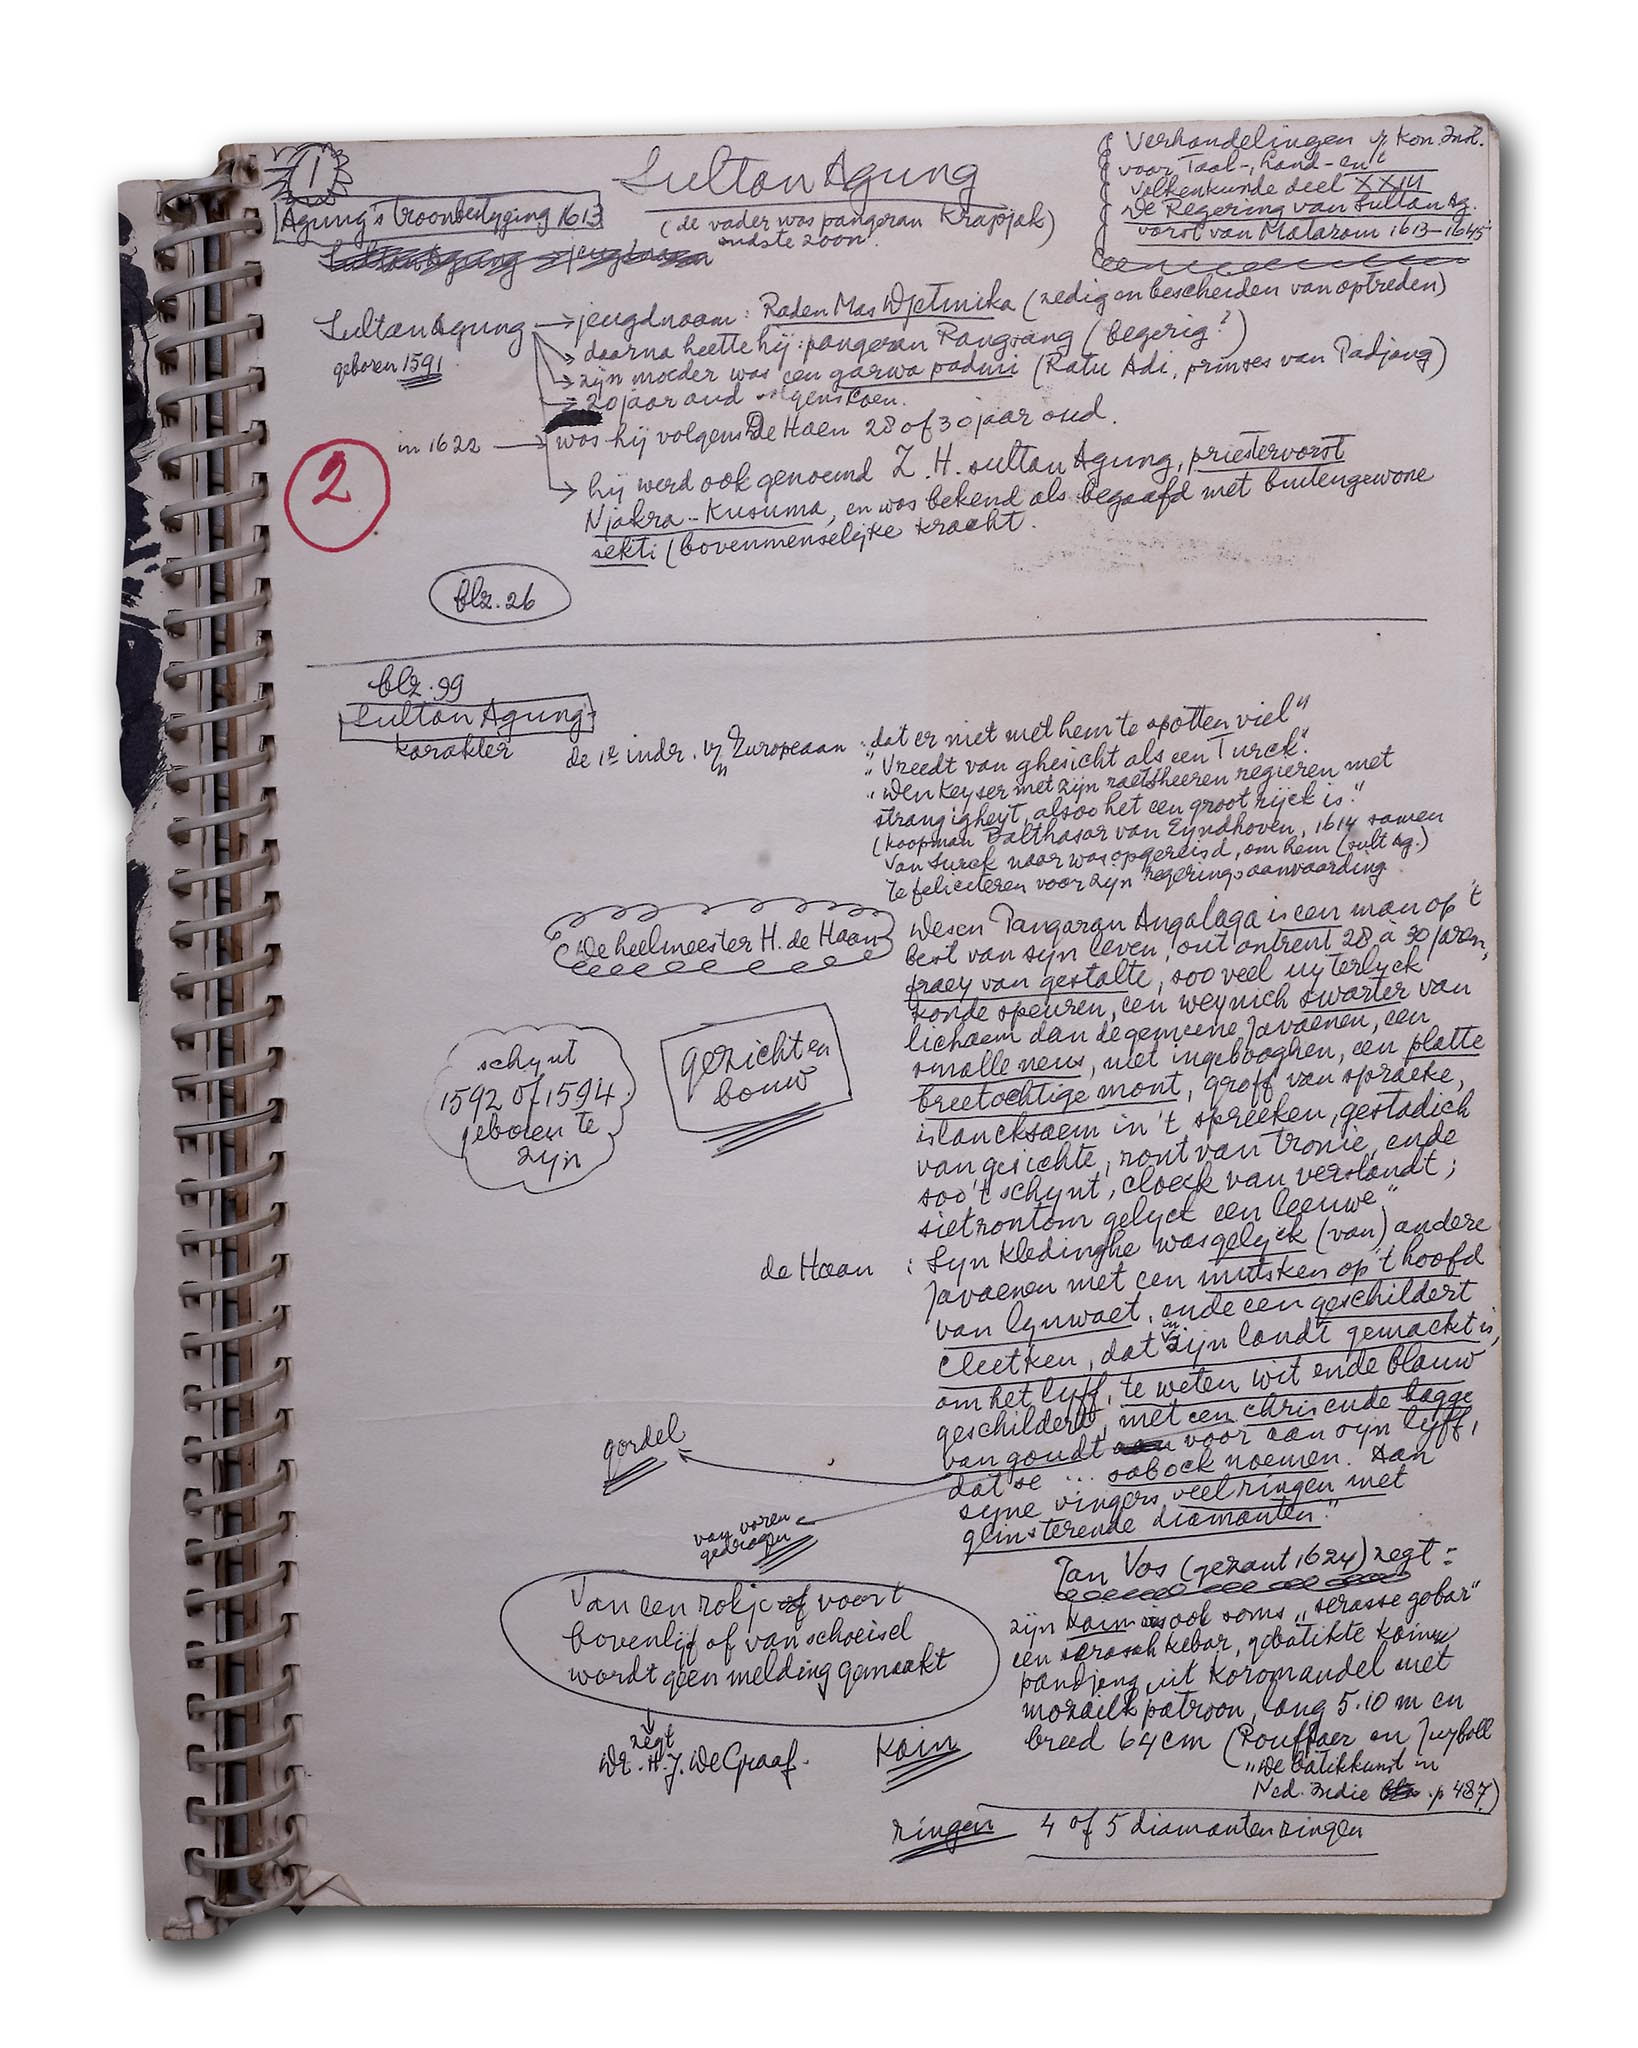 1
Sultan Agung
(de vader was pangeran Krapjak)
oudste zoon.
Verhandelingen v/h Kon. Inst.
voor Taal-, Land- en
Volkenkunde deel XXIII
De Regering van Sultan Ag.
vorst van Mataram 1613-1645
Agung's troonbestyging 1613
Sultan Agung
geboren 1591
jeugdnaam: Raden Mas Djetmika (zedig en bescheiden van optreden)
daarna heette hij: pangeran Rangsang (begerig?)
zijn moeder was een garwa padmi (Ratu Adi, prinses van Padjang)
20 jaar oud volgens Coen.
in 1622
was hij volgens De Haen 28 of 30 jaar oud.
2
hij werd ook genoemd Z.H. sultan Agung, priestervorst
Njakra-Kusuma, en was bekend als begaafd met buitengewone
sekti (bovenmenselijke kracht.
blz. 26
blz. 99
Sultan Agung-
karakter
de 1e indr. v/n Europeaan
"dat er niet met hem te spotten viel"
"Vreedt van ghesicht als een Turck."
"Den Keyser met zijn raetsheeren regieren met
strangigheyt, alsoo het een groot rijck is."
(koopman Balthasar van Eyndhoven, 1614 samen
van Surck naar was opgereisd, om hem (sult Ag.)
te feliciteren voor zijn regeringsaanvaarding
De heelmeester H. de Haan
Desen Pangaran Angalaga is een man op 't
best van syn leven, out ontrent 28 à 30 jaren,
fraey van gestalte, soo veel uyterlyck
konde speuren, een weynich swarter van
lichaem dan de gemeene Javaenen, een
smalle neus, niet ingebooghen, een platte
breetachtige mont, groff van spraeke,
is lancksaem in 't spreeken, gestadich
van gesichte, ront van tronie, ende
soo 't schynt, cloeck van verstandt;
siet rontom gelyck een leeuwe,"
schynt
1592 of 1594
geboren te
zyn
gezicht en
bouw
de Haan : Syn kledinghe was gelyck (van) andere
Javaenen met een mutsken op 't hoofd
van lynwaet, ende een geschildert
cleetken, dat in zijn landt gemackt is,
om het lyff, te weten wit ende blauw
geschildert, met een chris ende bagge
van goudt voor aan syn lyff,
dat se ... sabock noemen. Aan
syne vingers veel ringen met
glinsterende diamanten."
gordel
van voren
gedragen
Jan Vos (gezant 1624) zegt:
zijn kain is ook soms "serasse gobar"
een sarasah kebar, gebatikte kain
pandjang uit Koromandel met
mozaiek patroon, lang 5.10 m en
breed 64 cm (Rouffaer en Juyboll
"De batikkunst in
Ned. Indie p 487)
Van een rokje of voort
bovenlijf of van schoeisel
wordt geen melding gemaakt
zegt
Dr. H.J. De Graaf.
Kain
ringen 4 of 5 diamanten ringen